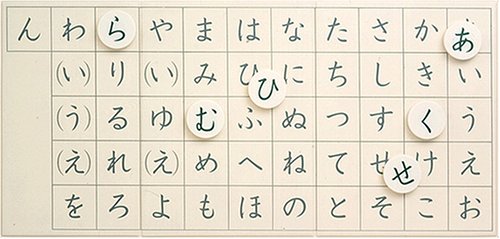 あいうえお
かきくけこ
さしすせそ
たちつてと
なにぬねの
はひふへほ
まみむめも
や(い)ゆ(え)よ
らりるれろ
わ(い)(う)(え)を
ん
ひ
せ